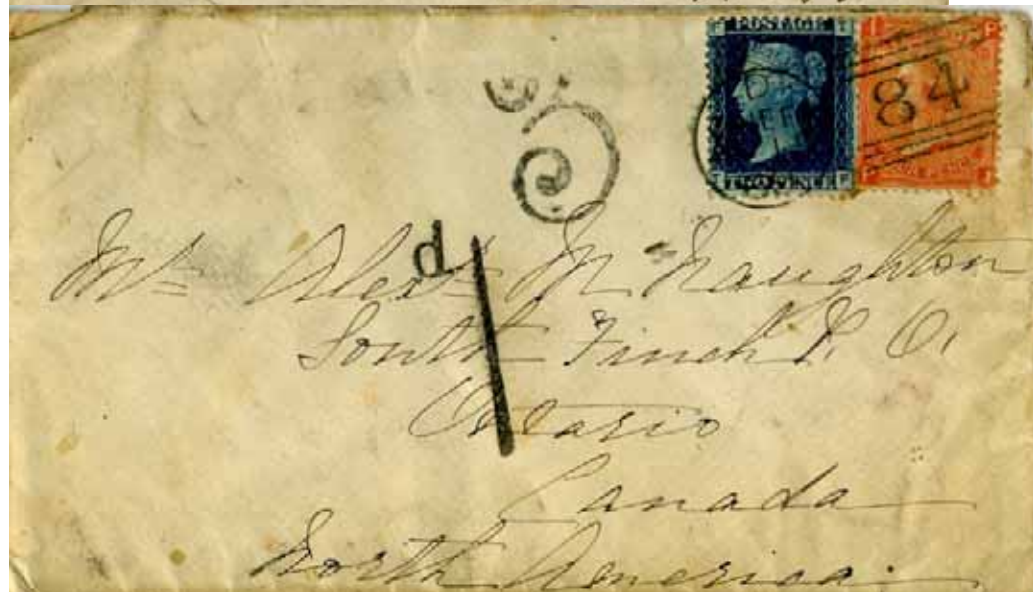 POSTAGE
84
d
1
Mr Alexr Mc Naughton
South Finch P. O.
Ontario
Canada
North America.